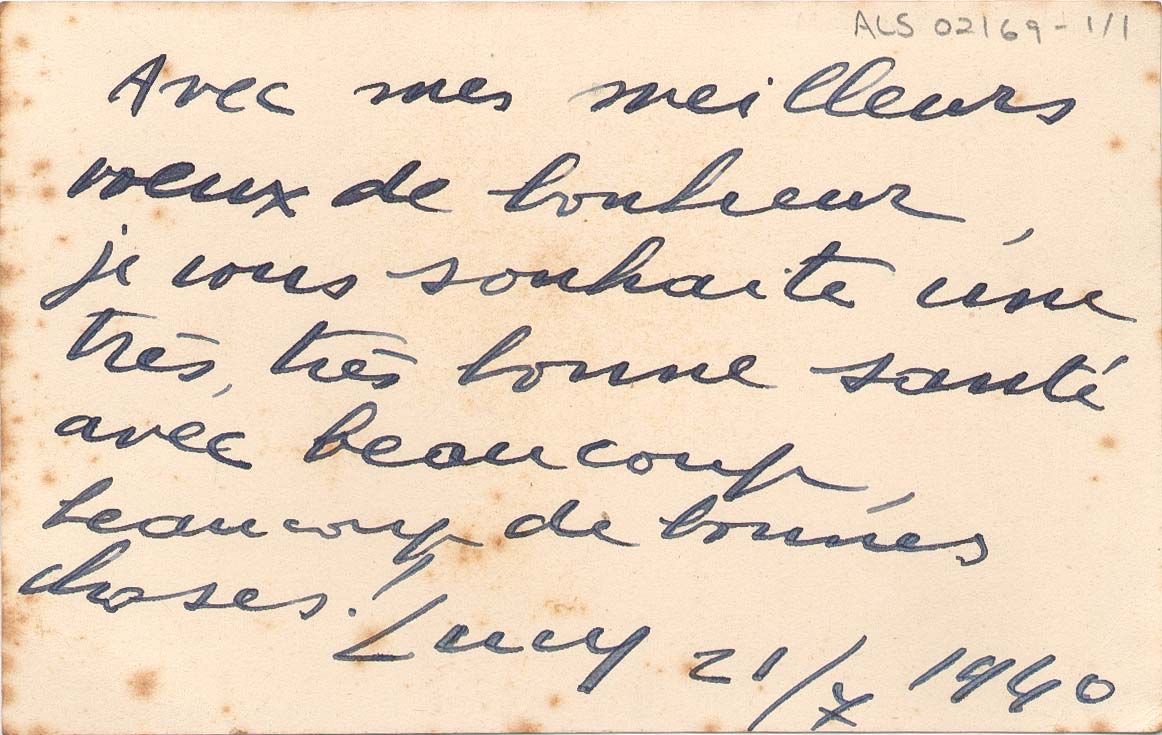 ALS 02169-1/1
Avec mes meilleurs
voeux de bonheur,
je vous souhaite une
très, très bonne santé
avec beaucoup,
beaucoup de bonnes
choses! Lucy 21/7 1940